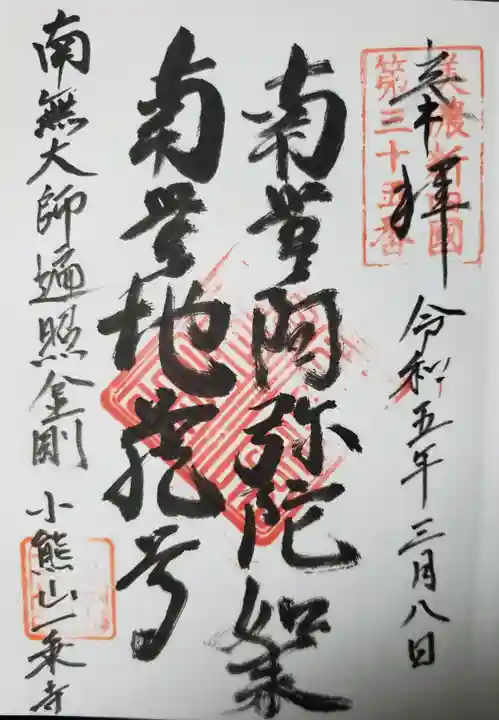 奉拝
美濃新四国
第三十五番
令和五年三月八日
南無阿弥陀如来
南無地蔵尊
南無大師遍照金剛
小熊山一乗寺